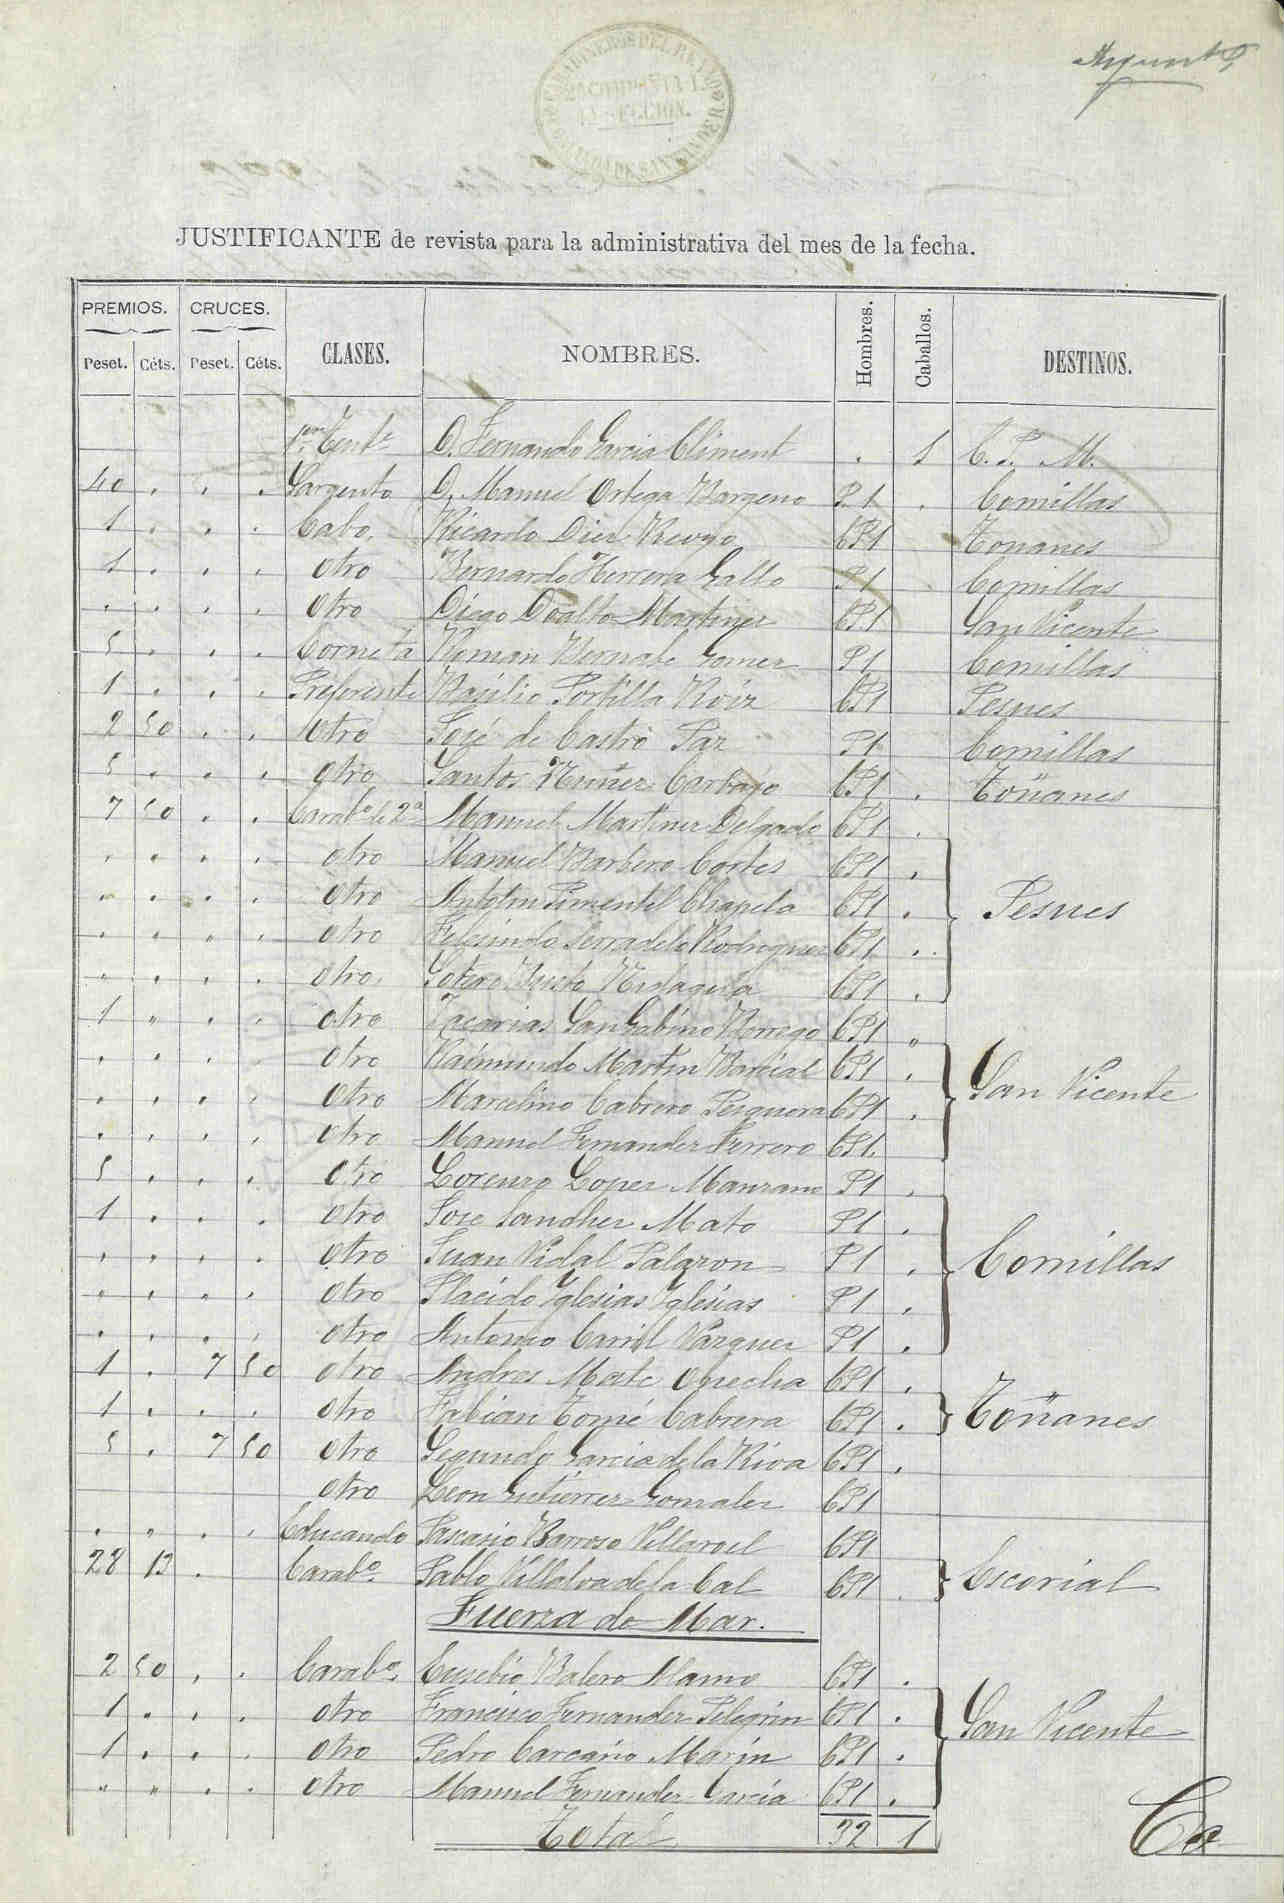 CARABINEROS DEL REINO
COMANDANCIA DE SANTANDER
JUSTIFICANTE de revista para la administrativa del mes de la fecha.
PREMIOS. CRUCES. CLASES. NOMBRES. Hombres. Caballos. DESTINOS.
Peset. Céts. Peset. Céts.
1er Tente D. Fernando Garcia Climent . 1 C. P. M.
40 . . . Sargento D. Manuel Ortega Bargeno P 1 . Comillas
1 . . . Cabo. Ricardo Diez CP1 Toñanes
1 . . . Otro Bernardo Herrera Gallo P1 Comillas
. . . . Otro Diego Doalto Martinez CP1 San Vicente
5 . . . Corneta Roman Bernabe Gomez P1 Comillas
1 . . . Preferente Basilio Portilla Roiz CP1 Pesues
2 50 . . Otro José de Castro Paz P1 Comillas
5 . . . Otro Santos Nuñez Carbajo CP1 . Toñanes
7 50 . . Carabo de 2a Manuel Martinez Delgado CP1 .
. . . . otro Manuel Barbero Cortes CP1 .
. . . . otro Antolin Pimentel Chapela CP1 . Pesues
. . . . otro Serradelo Rodriguez CP1 .
. . . . otro. Sotero Justo CP1 .
1 " . . otro Zacarias San Gabino Borrego CP1 "
. . . . Otro Raimundo Martin Barcial CP1 . San Vicente
. . . . Otro Marcelino Cabrero Pesquera CP1 .
. . . . otro Manuel Fernandez Ferrero CP1.
5 . . . Otro Lorenzo Lopez Manzano P1 .
1 . . . Otro Jose Sanchez Mato P1 .
. . . . Otro Juan Vidal Palazon P1 . Comillas
. . . . otro Placido Yglesias Yglesias P1 .
. . . . otro Antonio Carril Vazquez P1 .
1 . 7 50 otro Andres Mate CP1 .
1 . . . otro Fabian Tomé Cabrera CP1 . Toñanes
5 . 7 50 otro Segundo Garcia de la Riva CP1 .
otro Leon Gutierrez Gonzalez CP1
. " . . Educando Pascasio Barroso Villaroel CP1
28 13 . Carabo. Pablo Villalva de la Cal CP1 . Escorial
Fuerza de Mar.
2 50 . . Carabo. Eusebio Balero Alamo CP1 .
1 . . . otro Francisco Fernandez Pelegrin CP1 . San Vicente
1 . . . otro Pedro Carcaño Marin CP1 .
" " . . otro Manuel Fernandez Garcia CP1 .
Total 32 1